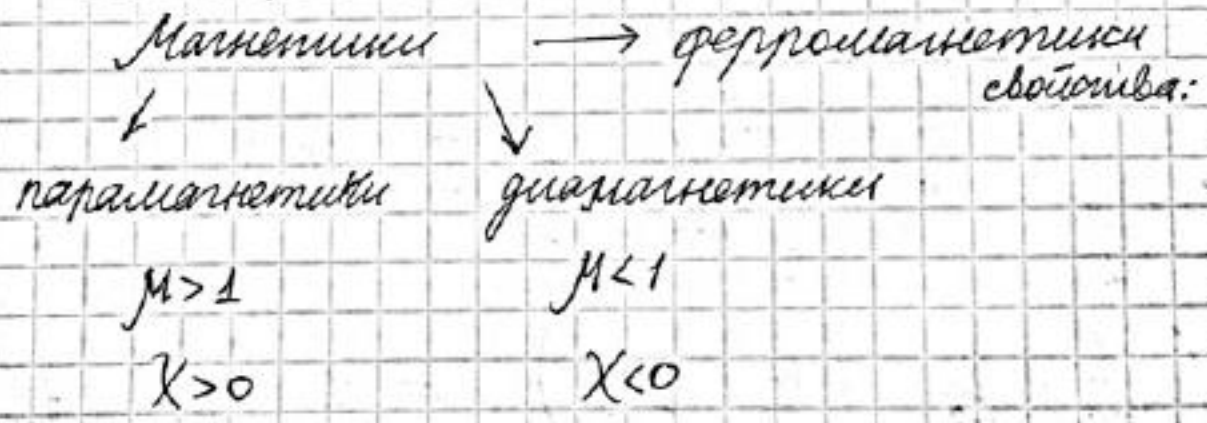 Магнетики → ферромагнетики
свойства:
парамагнетики диамагнетики
μ>1 μ<1
χ>0 χ<0